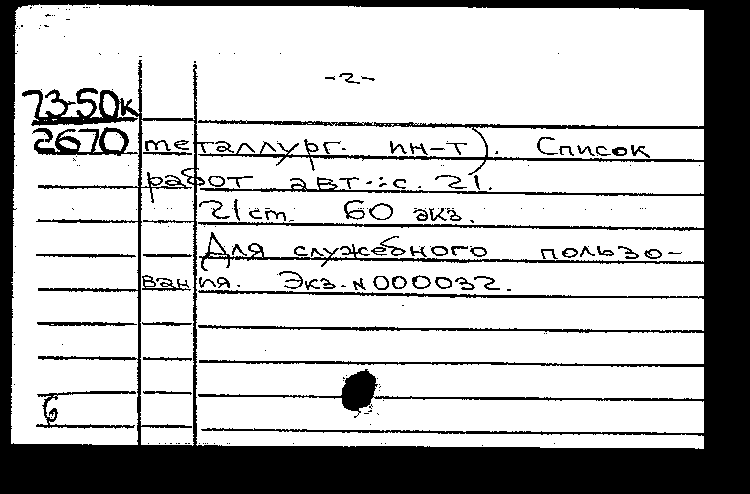 -2-
73-50к
2670
металлург. ин-т). Список
работ авт.: с. 21.
21 ст. 60 экз.
Для служебного пользо-
вания. Экз. № 000032.
6